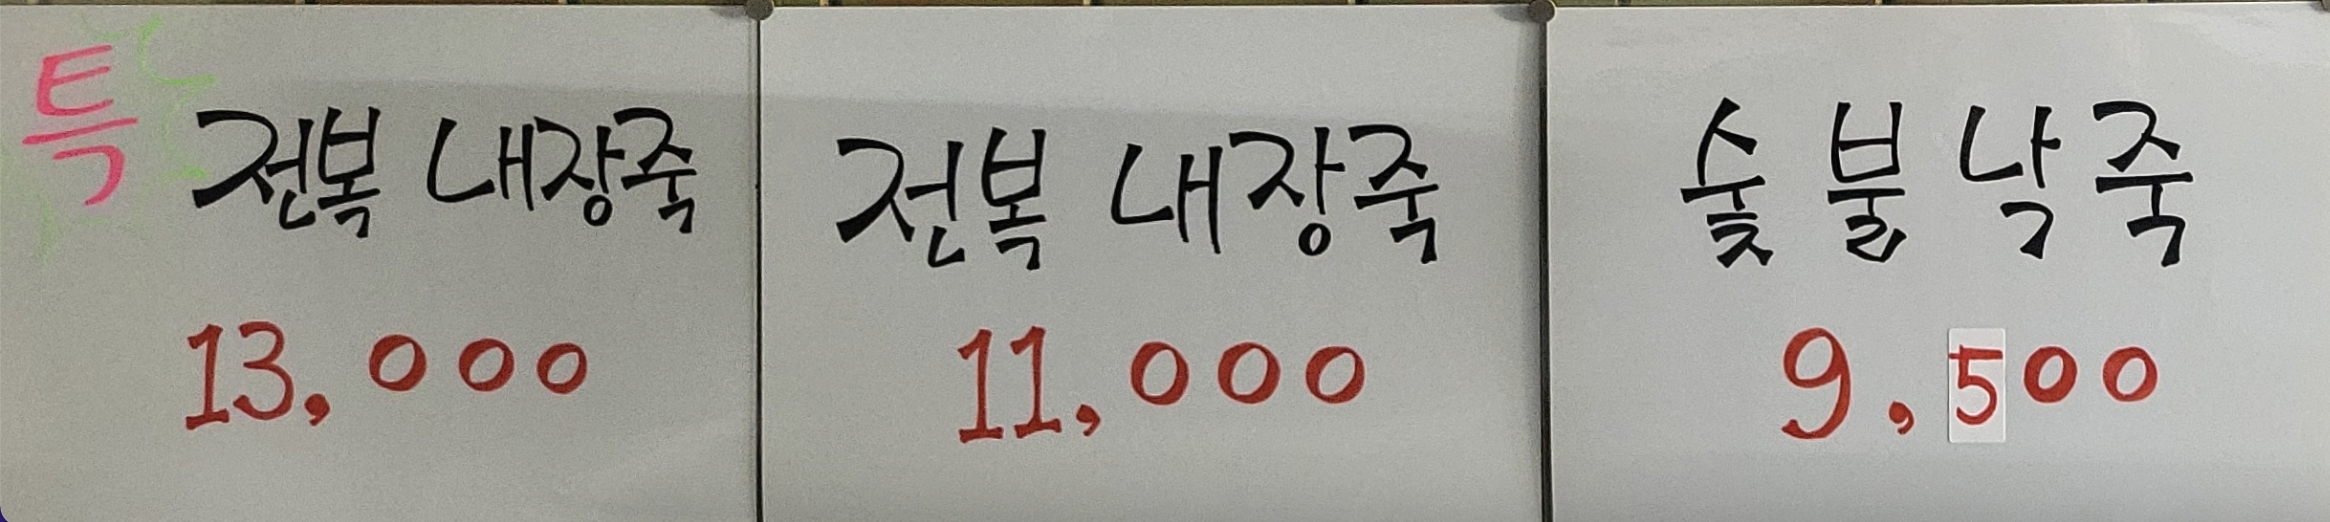 특 전복 내장죽
13,000
전복 내장죽
11,000
숯불낙죽
9,500